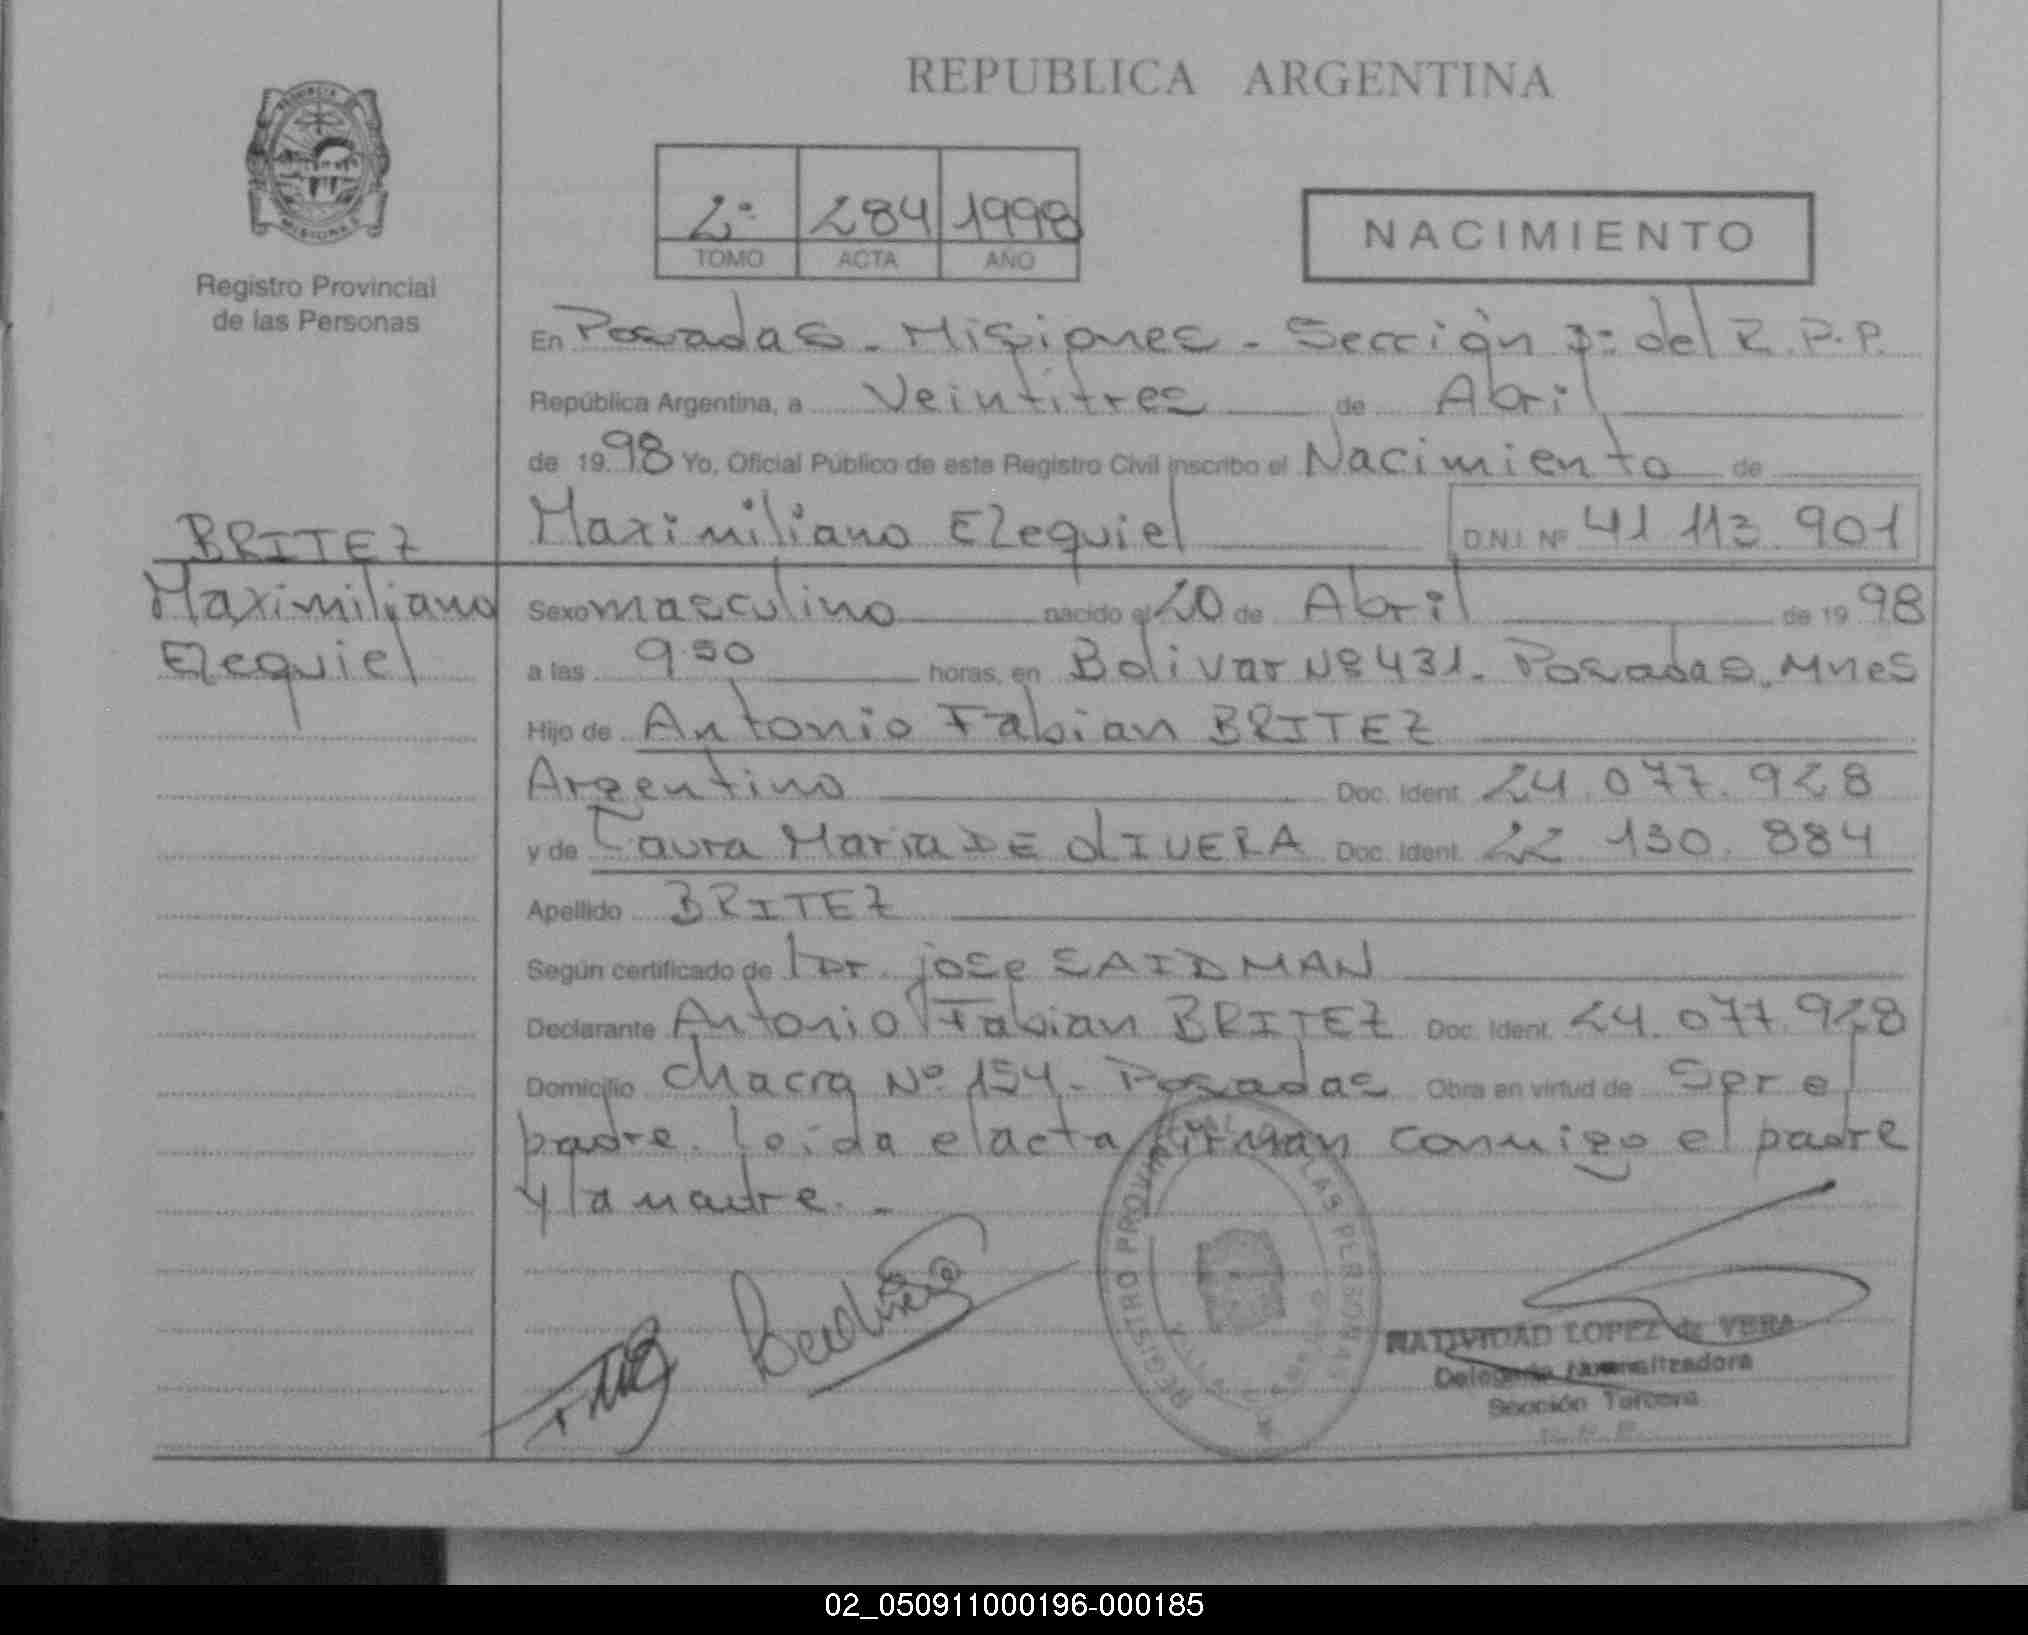 REPUBLICA ARGENTINA
PROVINCIA
MISIONES
Registro Provincial
de las Personas
2º 284 1998
TOMO ACTA AÑO
NACIMIENTO
En Posadas - Misiones - Sección 3º del R.P.P.
República Argentina, a Veintitres de Abril
de 1998 Yo, Oficial Público de este Registro Civil inscribo el Nacimiento de
BRITEZ
Maximiliano Ezequiel D.N.I. Nº 41 113.901
Maximiliano
Ezequiel
Sexo masculino nacido el 20 de Abril de 1998
a las 9:50 horas, en Bolivar Nº 431. Posadas. Mnes
Hijo de Antonio Fabian BRITEZ
Argentino Doc. Ident. 24.077.928
y de Laura Maria DE OLIVERA Doc. Ident. 22 130.884
Apellido BRITEZ
Según certificado de Dr. jose SAIDMAN
Declarante Antonio Fabian BRITEZ Doc. Ident. 24.077.928
Domicilio chacra Nº 154 - Posadas Obra en virtud de Ser el
padre. Leida el acta firman conmigo el padre
y la madre. -
REGISTRO PROVINCIAL LAS PERSONAS
NATIVIDAD LOPEZ de VERA
Delegada
Sección Tercera
02_050911000196-000185